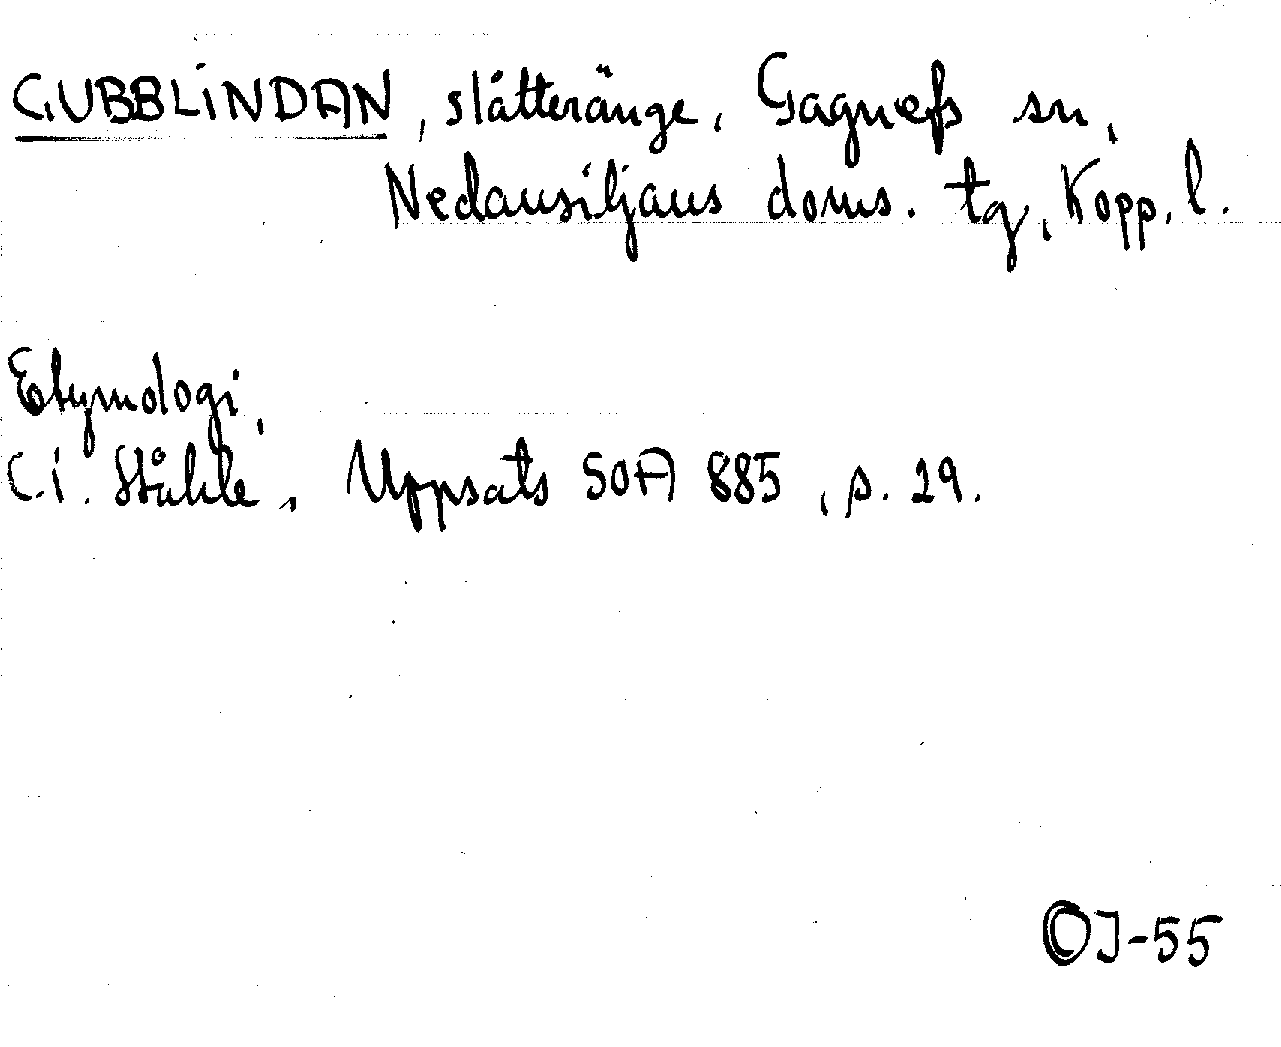 GUBBLINDAN, slåtteränge, Gagnefs sn,
Nedansiljans doms. tg, Kopp. l.
Etymologi,
C.I. Ståhle, Uppsats SOA 885, s. 29.
OJ-55